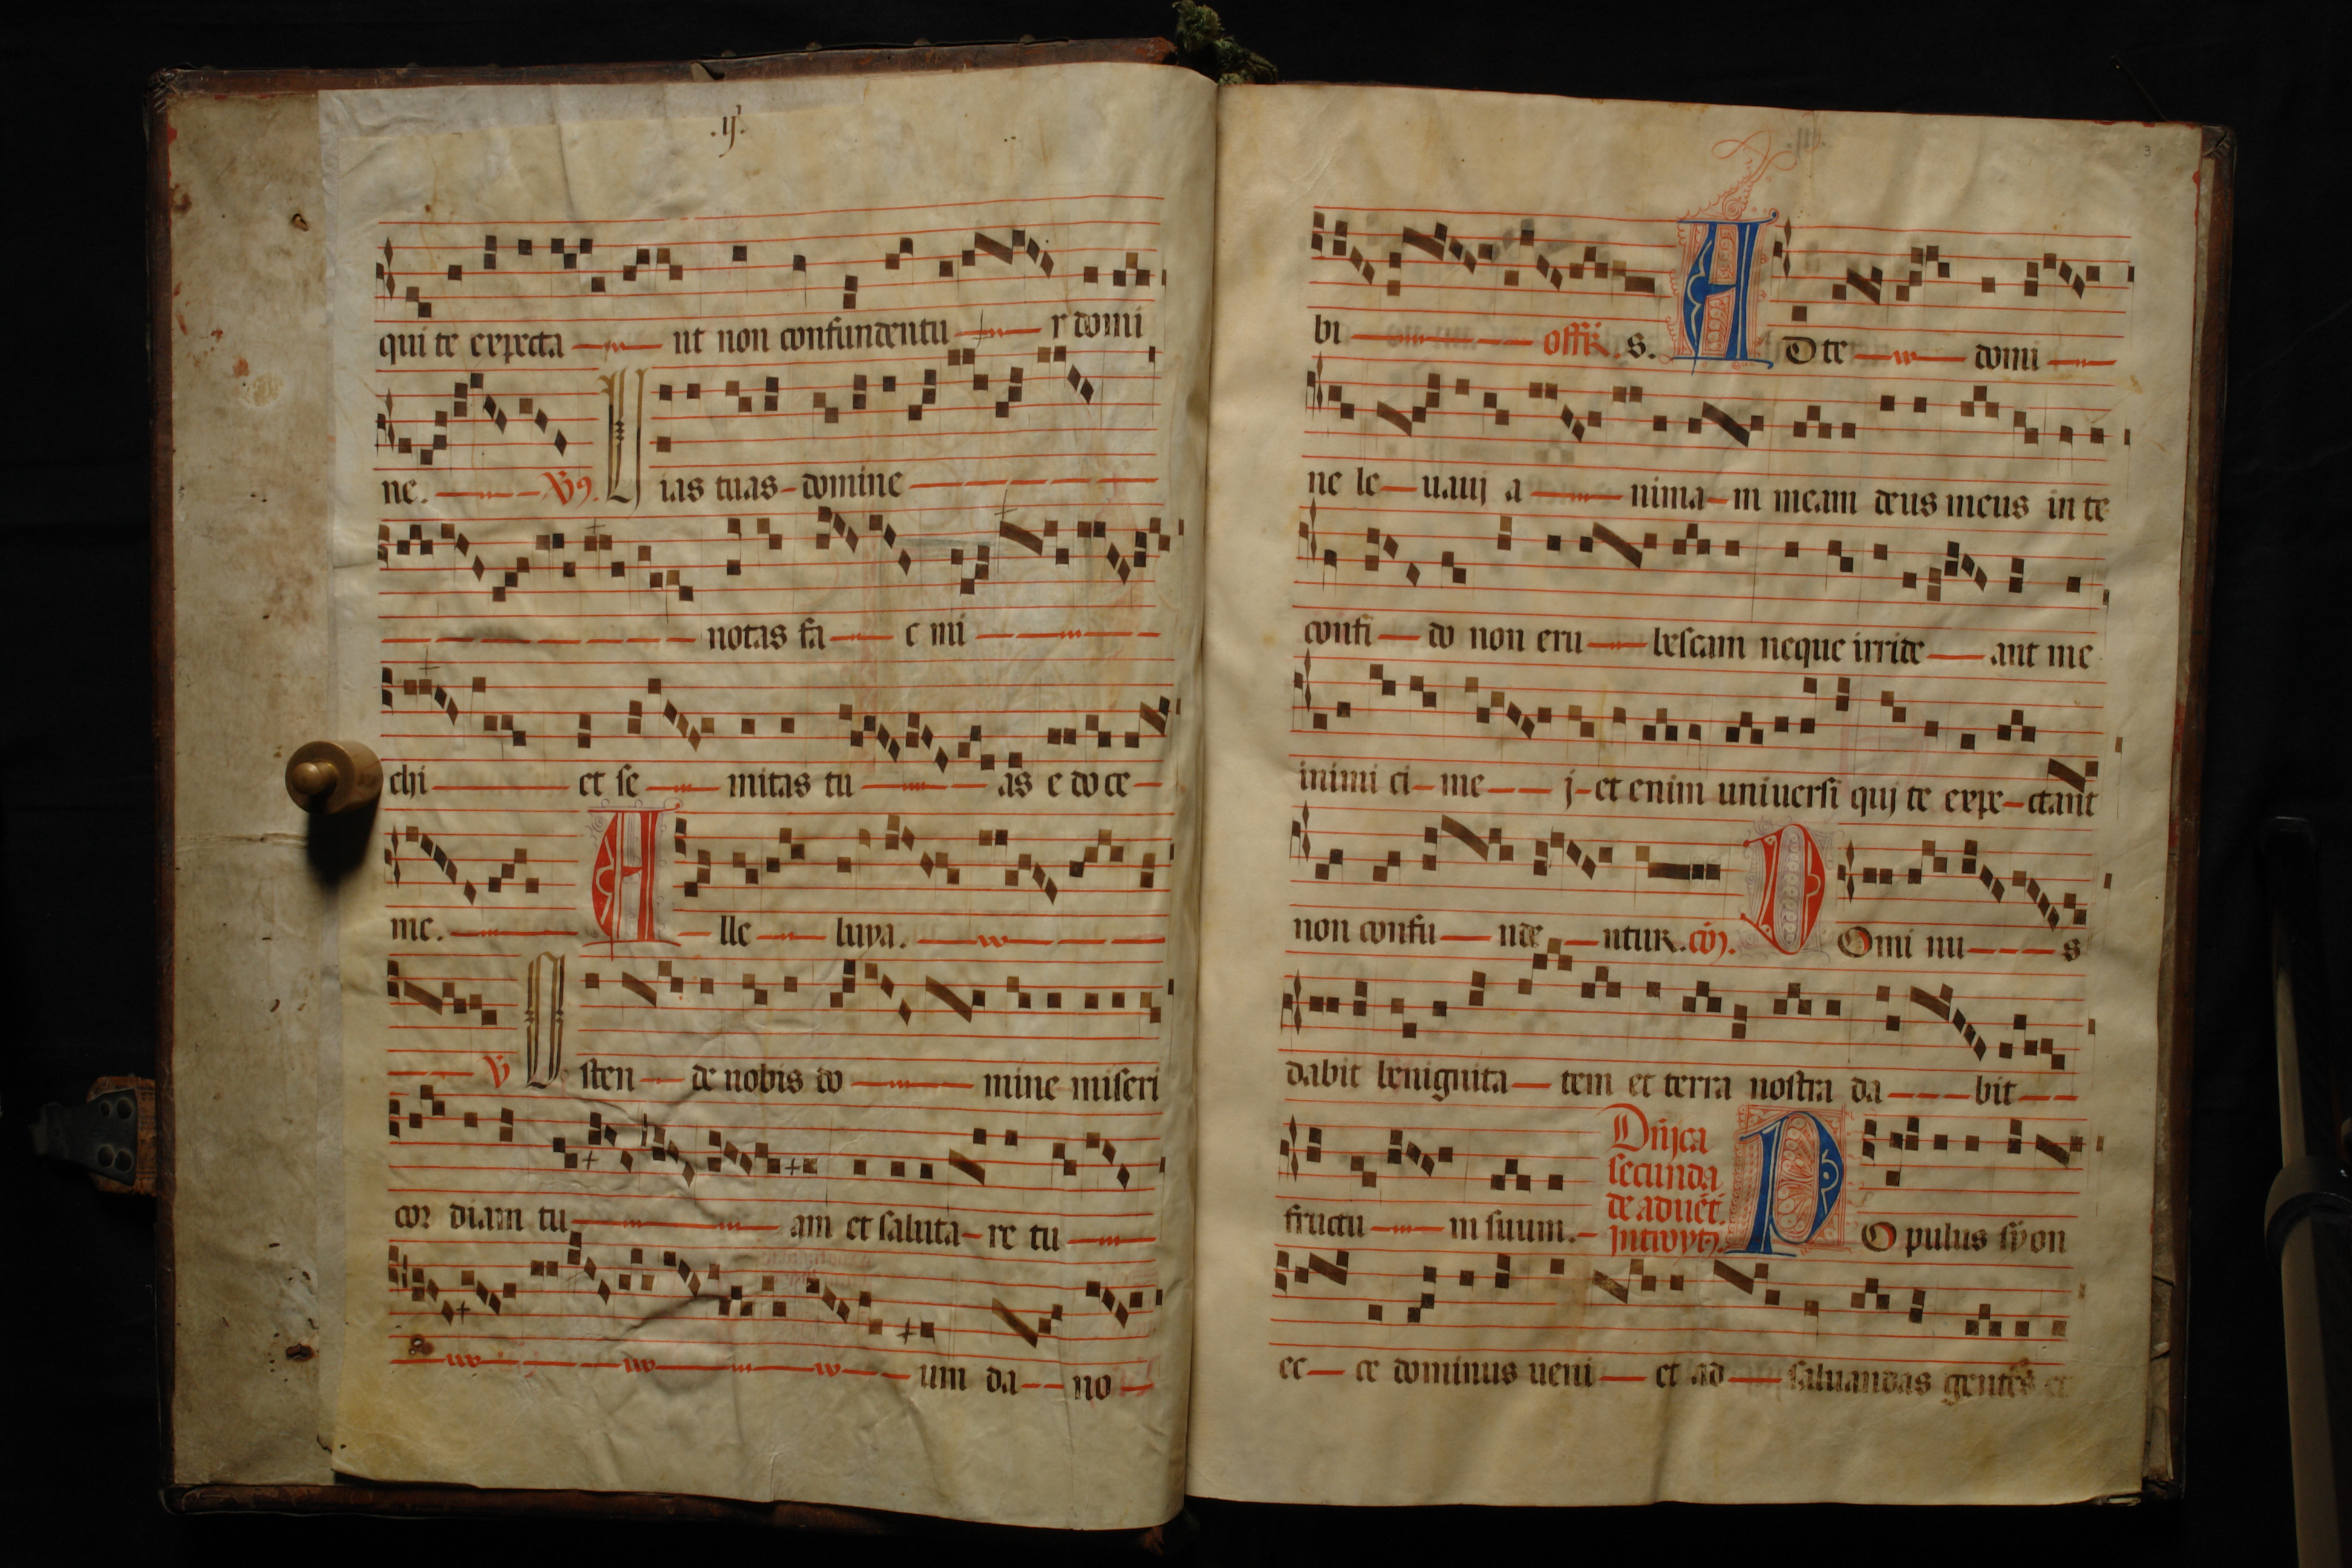 .ij.
qui te expecta nt non confundentu r domi
ne. V9. Uias tuas domine
notas fa c mi
chi et se mitas tu as e doce
me. A lle luya.
V Osten de nobis do mine miseri
cor diam tu am et saluta re tu
um da no
3
bi offR. s. A D te domi
ne le uauj a nima m meam deus meus in te
confi do non eru bescam neque irride ant me
inimi ci me j et enim uniuersi quj te expe ctant
non confu nde ntur. cō. D Omi nu s
dabit benignita tem et terra nostra da bit
fructu m suum. Dn̄jca
secunda
de aduēt.
P O pulus sÿon
ec ce dominus ueni et ad saluandas gentes et